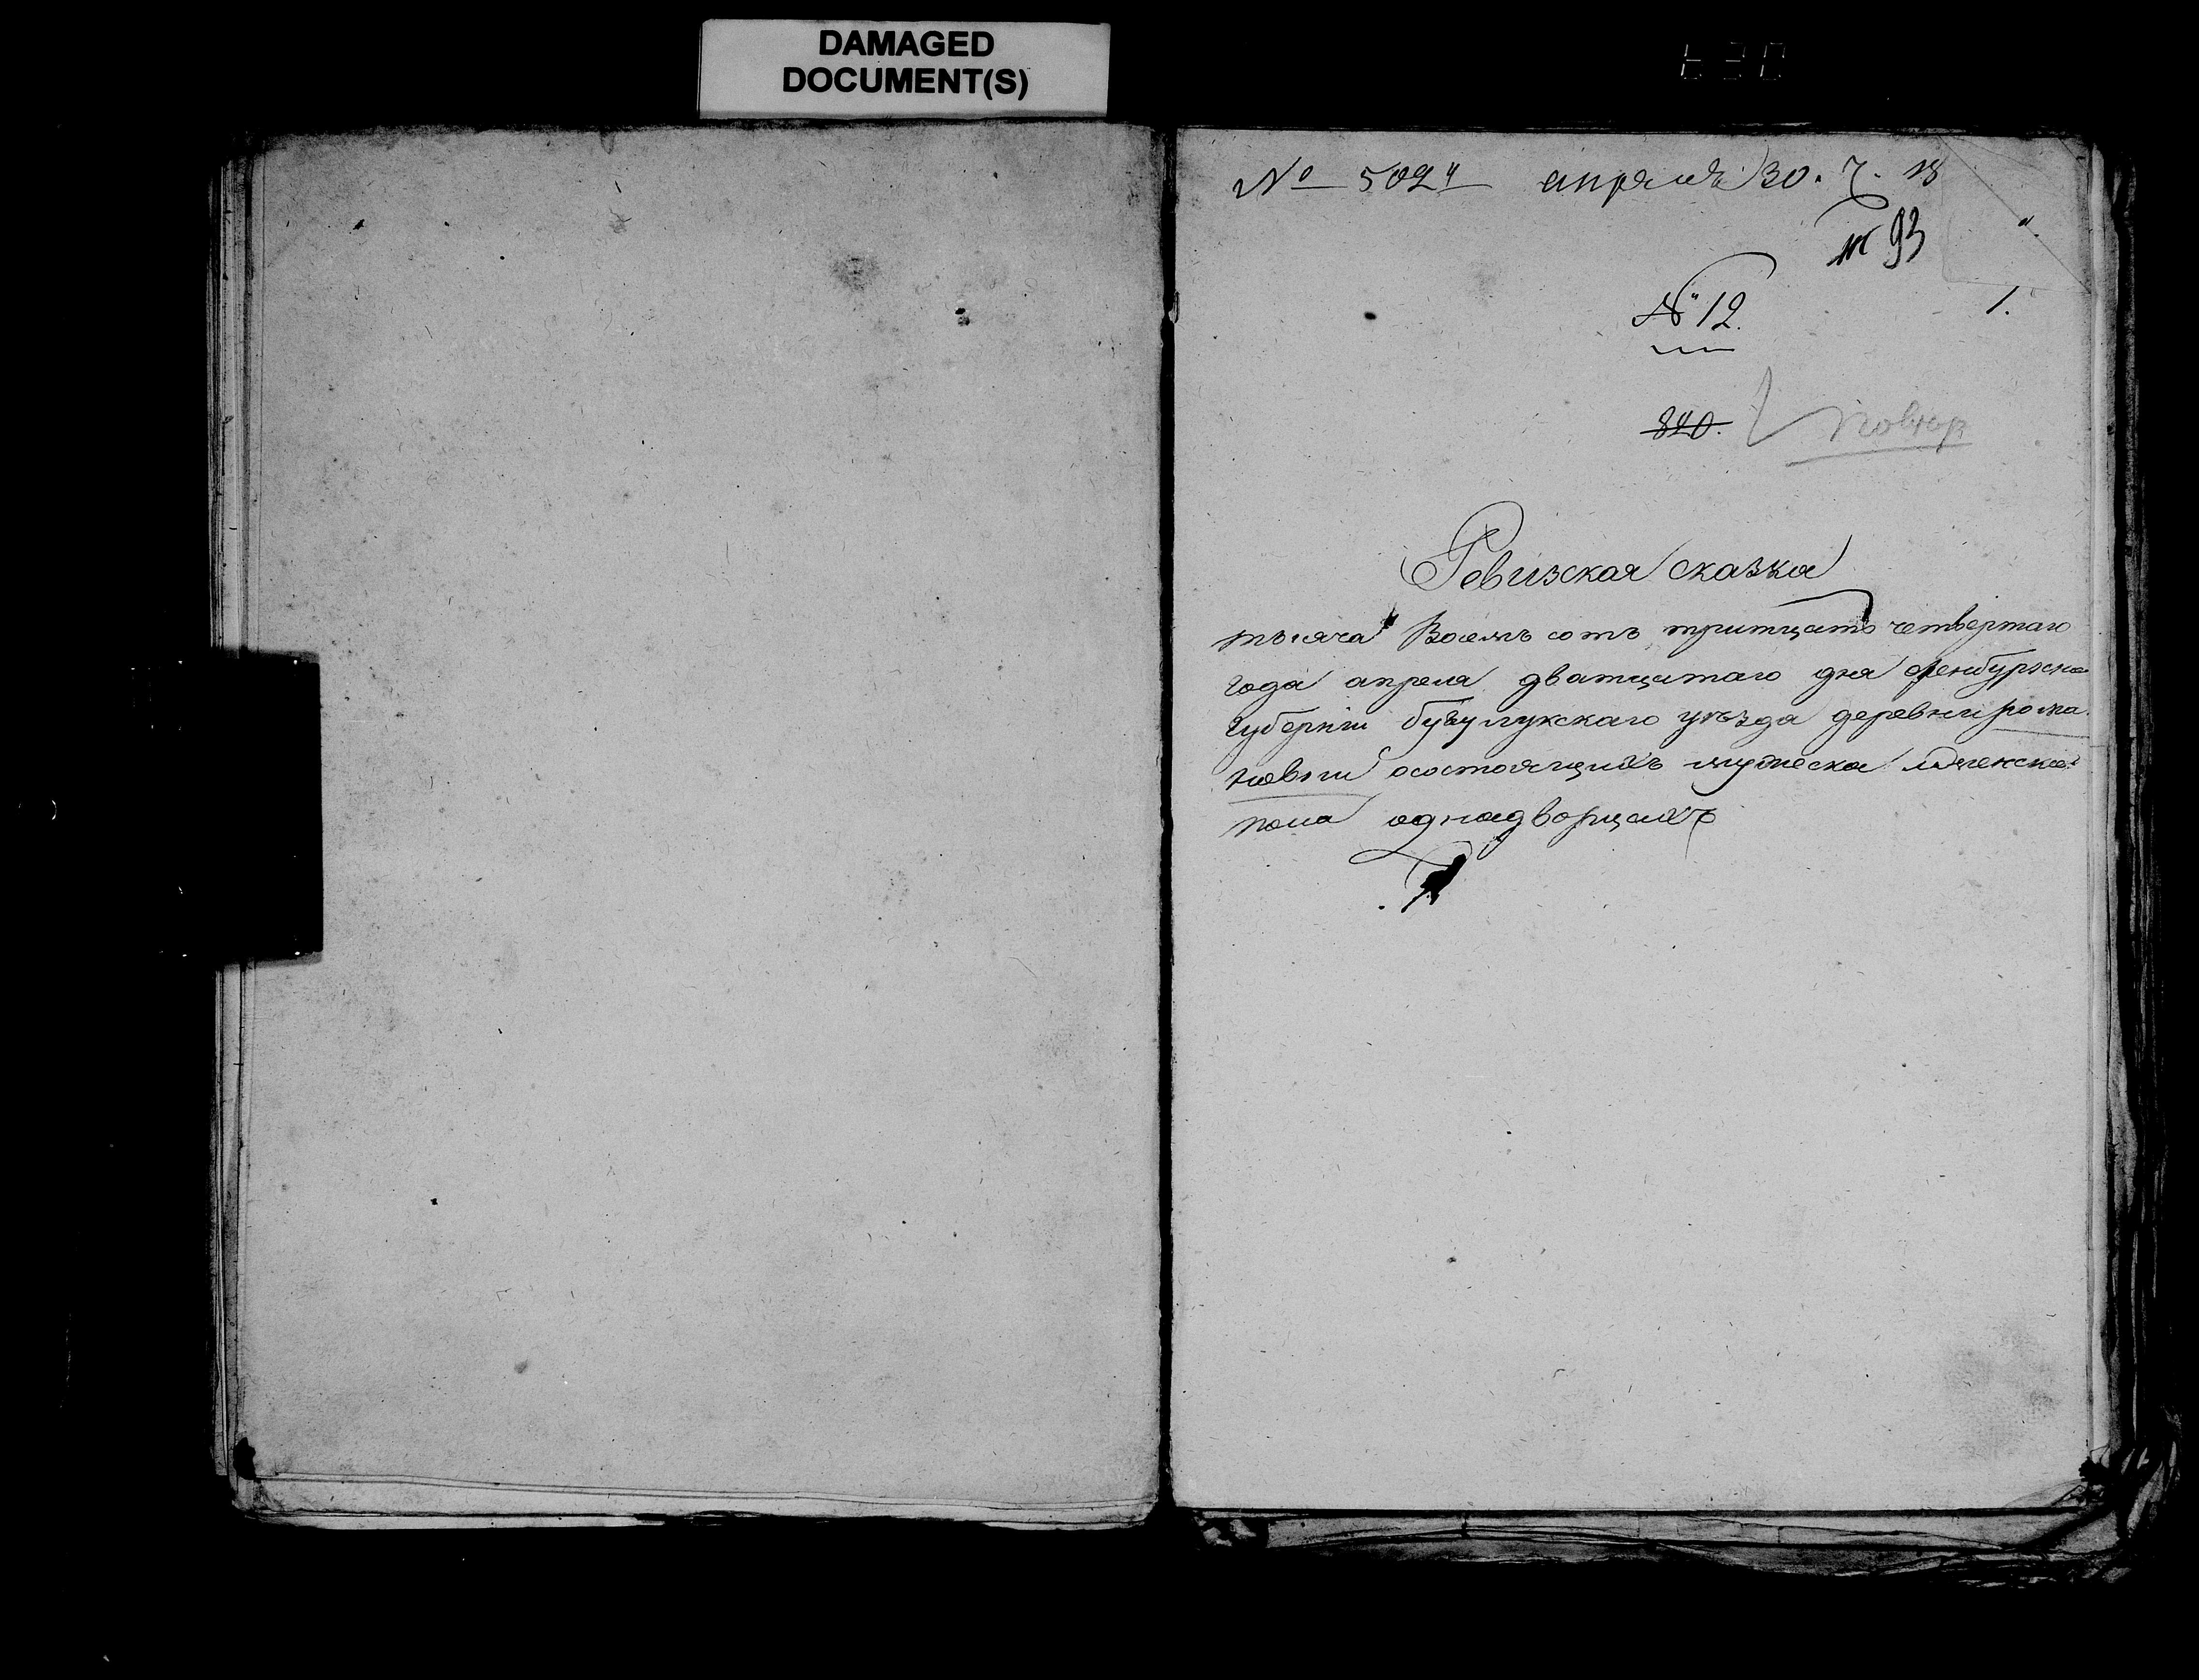 DAMAGED
DOCUMENT(S)
№ 502 апреля 30. ч. 18
№ 93
№ 12.
1.
840.
повтор
Ревизская сказка
тысяча Восемь сотъ тритцать четвертаго
года апреля дватцатаго дня оренбурско
губернiи бузулукскаго уѣзда деревни рома
новки осостоящихъ мужеска иженска
пола однадворцахъ